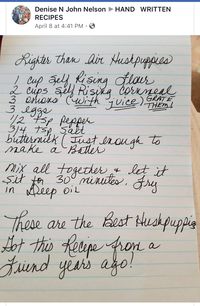 Denise N John Nelson ▸ HAND WRITTEN
RECIPES
April 8 at 4:41 PM ·
Lighter Than Air Hushpuppies
1 cup Self Rising Flour
2 cups Self Rising Cornmeal
3 onions (with juice) GRATE
THEM!
3 eggs
1/2 tsp pepper
3/4 tsp Salt
buttermilk (Just enough to
make a Batter
Mix all together & let it
Set for 30 minutes. Fry
in Deep oil
These are the Best Hushpuppies
Got this Recipe from a
Friend years ago!